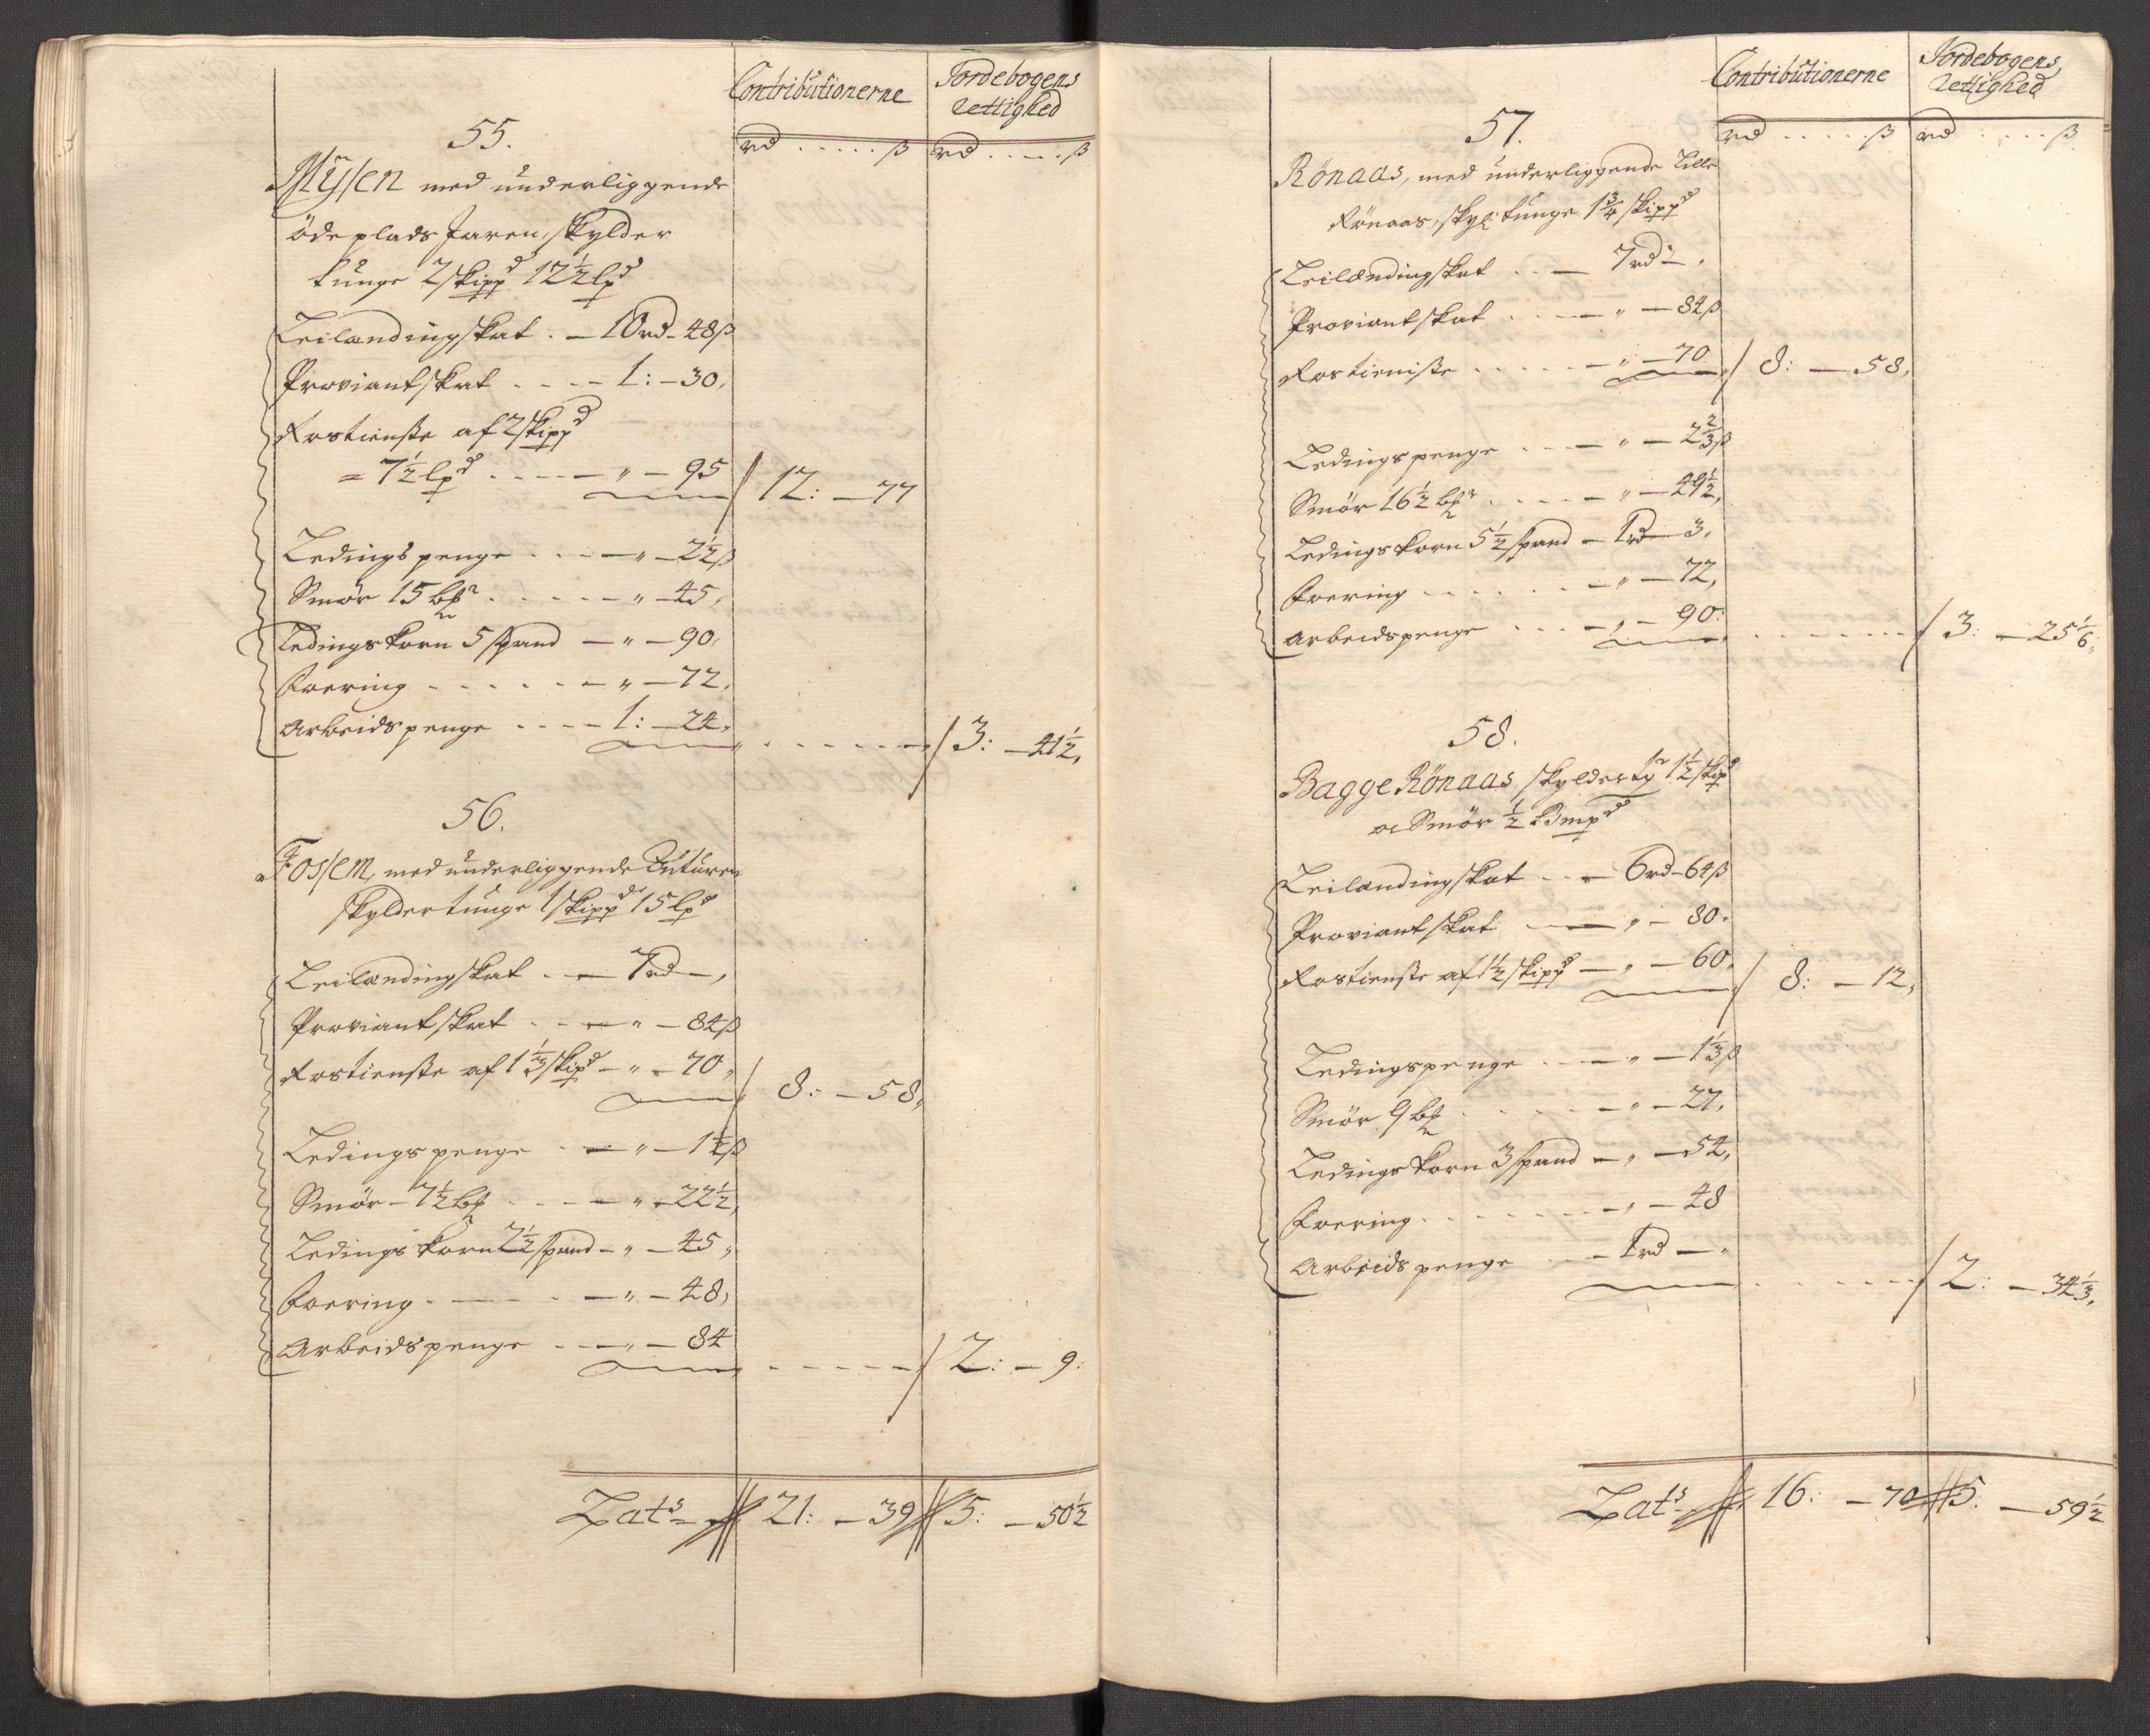 Contributionerne Jordebogens
Rettighed
rd ..... ß rd ..... ß
55.
Mysen med underliggende
öde plads Jaren, skylder
tunge 2 skippd 12½ lpd
Leilændingskat . – 10 rd – 48 ß
Proviantskat . . . . – 1: – 30.
Rostienste af 2 skippd
= 7½ lpd . . . . – " – 95 / 12: – 77
Ledings penge . . . – " – 2½ ß
Smör 15 bpr . . . . . – " – 45.
Ledingskorn 5 spand – " – 90.
Foering . . . . . . – " – 72.
Arbeidspenge . . . . – 1: – 24. . . . . . . / 3: – 41½.
56.
Fossem, med underliggende
skylder tunge 1 skippd 15 lpd
Leilændingskat . . – 7 rd – ,
Proviantskat . . – " – 84 ß
Rostienste af skipd – " – 70 „ / 8: – 58,
Ledings penge . – " – ß
Smör – 7½ bp . . . – " – 22½,
Ledings korn 2½ spand – " – 45 „
Foering . – – " – 48,
Arbeidspenge . . – " – 84 . . . . . / 2: – 9:
Lats 21: – 39 5: – 50½
Contributionerne Jordebogens
Rettighed
rd ..... ß rd ..... ß
57.
Rönaas, med underliggende Lille
Rönaas, skyl: tunge 1¾ skippd
Leilændingskat . . – 7 rd – .
Proviantskat . . . – " – 84 ß
Rostieniste . . . . . – " – 70 / 8: – 58,
Ledings penge . . . – " – 2⅔ ß
Smör 16½ bpr . . . . – " – 49½,
Ledingskorn 5½ spand – 1 rd – 3,
Foering . . . . . . – " – 72,
Arbeidspenge . . . – „ – 90: . . . . . . . / 3: – 25⅙.
58.
Bagge Rönaas, skylder 1½ skipd
oc Smör ½ Bmpd
Leilændingskat . . – 6 rd – 64 ß
Proviantskat – „ – 80.
Rostienste af 1½ skippd – „ – 60, / 8: – 12,
Ledingspenge . . – " – 1⅓ ß
Smör 9 bp . . . . – " – 27.
Ledings korn 3 spand – „ – 54,
Foering . . . . . . . – „ – 48
Arbeids penge . . – 1 rd – „ . . . . . . . / 2: – 34⅓.
Lats 16: – 70 5: – 59½